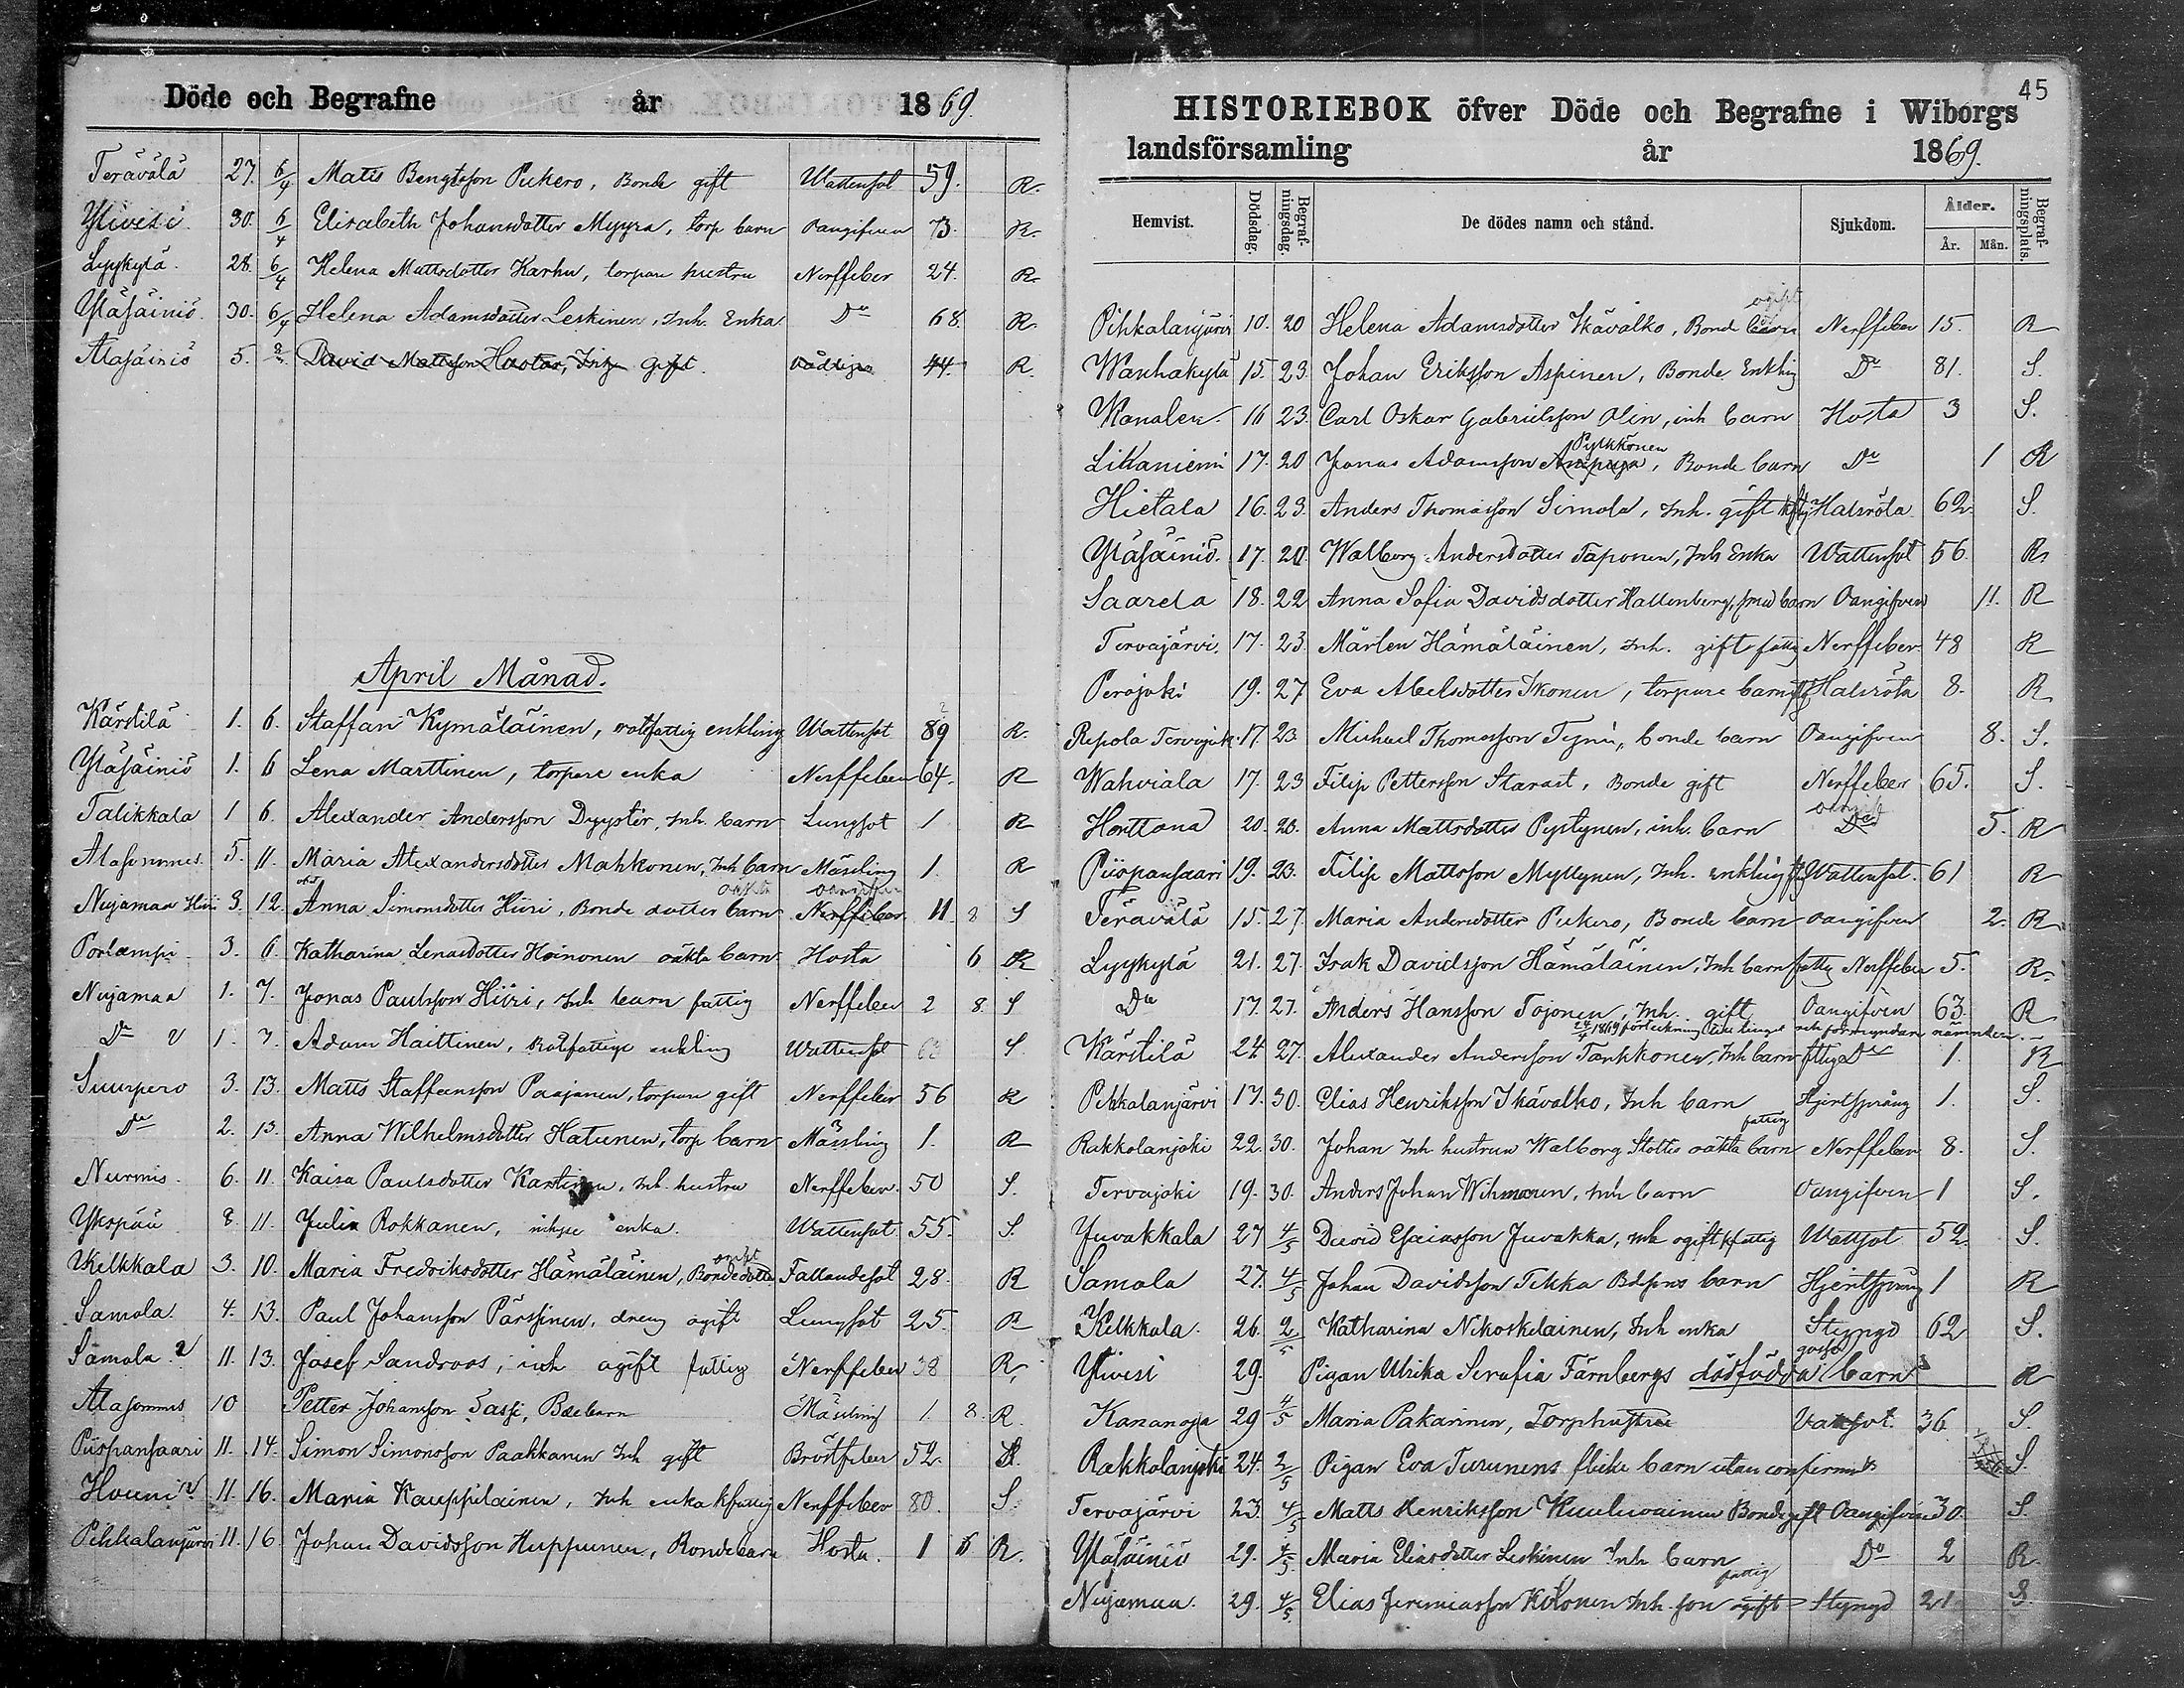 Döde och Begrafne år 1869.
Teräválá 27. 6/4 Matts Bengtsson Pukero, Bonde gift Wattensot 59. R.
Ylivesi 30. 6/4 Elisabeth Johansdotter Myyrä, torp barn oangifven 73. R.
Lyykylä. 28. 6/4 Helena Mattsdotter Karhu, torpare hustru Nerffeber 24. R.
Yläsäiniö. 30. 6/4 Helena Adamsdotter Leskinen, Inh. Enka Do 68. R.
Alasäiniö 5. David Mattsson Gift. 44. R.
April Månad.
Kärstilä 1. 6. Staffan Kymäläinen, rotefattig enkling Wattensot 89 R.
Yläsäiniö 1. 6 Lena Marttinen, torpare enka Nerffeber 64. R
Talikkala 1 6. Alexander Andersson Dyyster, Inh. barn Lungsot 1 R
Alasommes. 5. 11. Maria Alexandersdotter Mahkonen, Inh barn Mässling 1. R
Nuijamaa Hüri 3. 12. Anna Simonsdotter Hüri, Bonde dotter barn Nerffeber 11. 8 S
Porlampi 3. 6. Katharina Lenasdotter Hoinonen oäkta barn Hosta 6 R
Nuijamaa 1. 7. Jonas Paulsson Hüri, Inh barn fattig Nerffeber 2 8. S
Do 1. 7. Adam Haittinen, Rotfattige enkling Wattensot 63 S.
Suurpero 3. 13. Matts Staffansson Paajanen, torpare gift Nerffeber 56 R
Do 2. 13. Anna Wilhelmsdotter Hatunen, torp barn Mässling 1. R
Nurmis. 6. 11. Kaisa Paulsdotter Inh. hustru Nerffeber. 50 S.
Ykspää 8. 11. Julia Rokkanen, enka. Wattensot 55. S.
Kilkkala 3. 10. Maria Fredriksdotter Hämäläinen, Bondedotter ogift Fallandesot 28. R
Samola. 4. 13. Paul Johansson Pärssinen, dreng ogift Lungsot 25. R
Samola 11. 13. Josef Sandroos, inh ogift fattig Nerffeber 38 R.
Alasommes 10 Petter Johansson Sassi, Bdebarn Mässling 1. 8. R.
Püspansaari 11. 14. Simon Simonsson Paakkanen Inh gift Bröstfeber 52. R.
Houni 11. 16. Maria Kauppilainen, Inh enka kfattig Nerffeber 80. S.
Pihkalanjärvi 11. 16. Johan Davidsson Huppunen, Bondebarn Hosta. 1 6 R.
45
HISTORIEBOK öfver Döde och Begrafne i Wiborgs
landsförsamling år 1869.
Hemvist. Dödsdag. Begrafningsdag. De dödes namn och stånd. Sjukdom. Ålder. År. Mån. Begrafningsplats.
Pihkalanjärvi 10. 20 Helena Adamsdotter Ikävalko, Bond barn ogift Nerffeber 15. R
Wanhakylä 15. 23. Johan Eriksson Aspinen, Bonde Enkling Do 81. S.
Kanalen. 16 23. Carl Oskar Gabrielsson Olin, inh barn Hosta 3 S.
Likaniemi 17. 20 Jonas Adamsson Pylkkönen, Bonde barn Do 1 R
Hietala 16. 23. Anders Thomasson Simola, Inh. gift kfttg Halsröta 62 S.
Yläsäiniö. 17. 20. Walborg Andersdotter Taponen, Inh Enka Wattensot 56. R.
Saarela 18. 22 Anna Sofia Davidsdotter Hallenberg, smed barn Oangifven 11. R
Tervajärvi. 17. 23. Märten Hämäläinen, Inh. gift fattig Nerffeber 48 R
Perojoki 19. 27 Eva Abelsdotter Ikonen, torpare barn Halsröta 8. R
Repola Tervajok. 17. 23. Michael Thomasson Tynni, bonde barn Oangifven 8. S.
Wahviala 17. 23 Filip Pettersson Starast, Bonde gift Nerffeber 65. S.
Honttona 20. 23. Anna Mattsdotter Pystynen, inh. barn oangif 5. R
Püspansaari 19. 23. Filip Mattsson Myllynen, Inh. enkling Wattensot. 61 R
Teräválá 15. 27. Maria Andersdotter Pukero, Bonde barn oangifven 2. R
Lyykylä 21. 27. Isak Davidsson Hämäläinen, Inh barn fattig Nerffeber 5. R.
Do 17. 27. Anders Hansson Tojonen, Inh. gift Oangifven 63. R
Kärstilä 24. 27. Alexander Andersson Tankkonen, Inh barn fttga Do 1. R
Pihkalanjärvi 17. 30. Elias Henriksson Ikävalko, Inh barn Hjertsprång 1. S.
Rakkolanjoki 22. 30. Johan Inh hustrun Walborg Slotts oäkta barn fattig Nerffeber 8. S.
Tervajoki 19. 30. Anders Johan Wihmanen, Inh barn Oangifven 1 S.
Juvakkala 27 4/5 David Esaiasson Juvakka, Inh ogift kfattig Wattsot 52. S.
Samola 27. 4/5 Johan Davidsson Tikka Bdsons barn Hjertsprång 1 R
Kilkkala. 26. 2/5 Katharina Nikoskelainen, Inh enka Styngd 62 S.
Ylivesi 29. Pigan Ulrika Serafia Färnbergs dödfödda gosse barn R
Kananoja 29 4/5 Maria Pakarinen, Torphustru Vatsot. 36 S.
Rakkolanjoki 24. 2/5 Pigan Eva Turunens flicke barn utan S.
Tervajärvi 23. 4/5 Matts Henriksson Bonde gift Oangifven 30. S.
Yläsäiniö 29. 4/5 Maria Eliasdotter Leskinen Inh barn Do 2 R.
Nuijamaa. 29. 4/5 Elias Jeremiasson Inh. son ogift fattig Styngd 21 S.